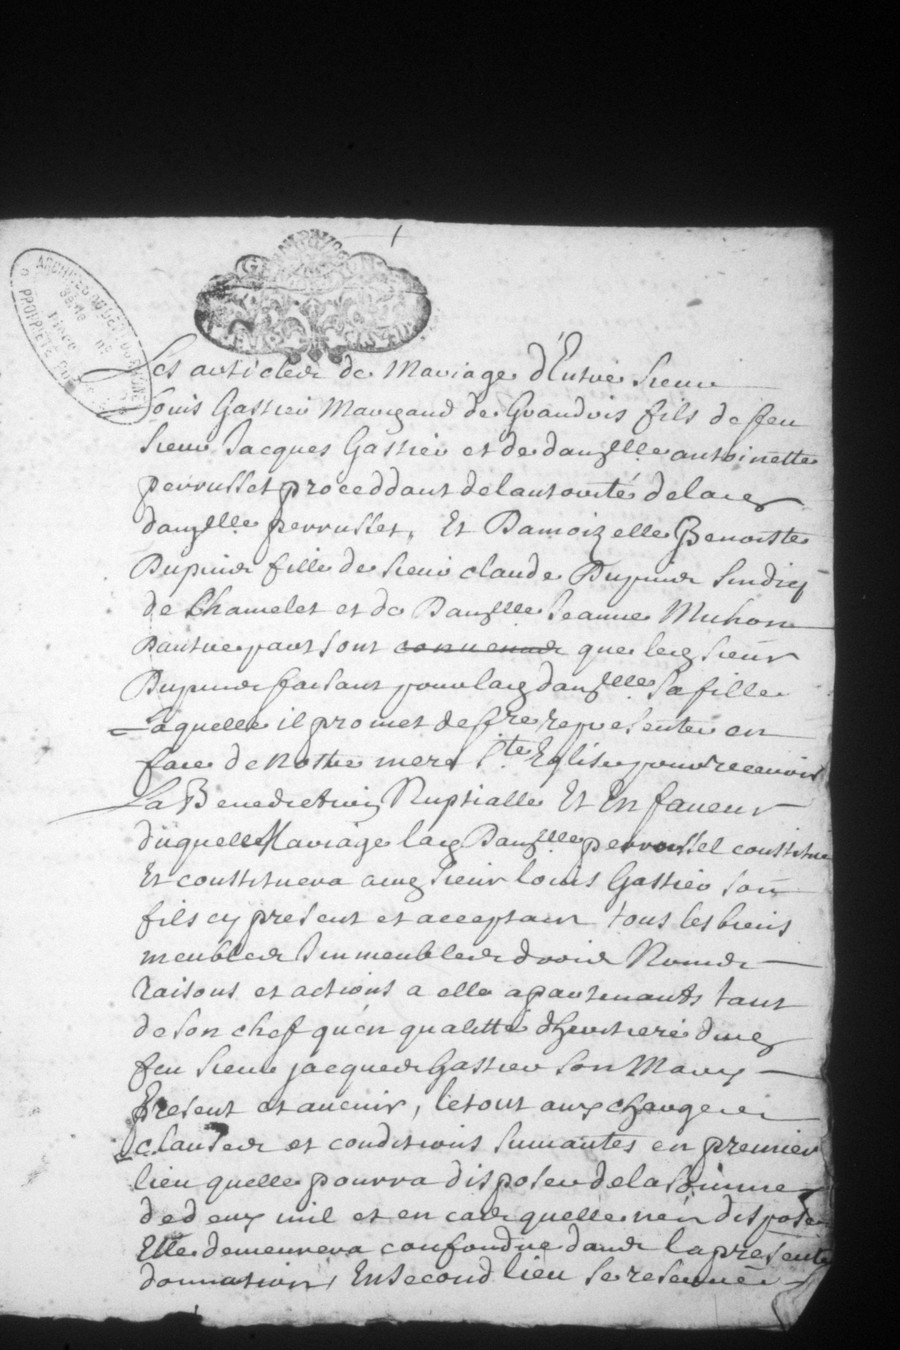 Les articles de Mariage d'Entre sieur
Louis Gastier Margand de Grandris fils de feu
sieur Jacques Gastier et de dauzlle antoinette
perrusset proceddant de lautorité de lad
dauzlle perrusset, Et Damoizelle Benoiste
Dupuis fille de sieur claude Dupuis sindicq
de Chamelet et de Dauzlle Jeanne Muhon
Dautre part sont convenus que led sieur
Dupuis faisant pour lad dauzlle sa fille
Laquelle il promet de fre representer en
face de Nostre mere ste Eglise pour recevoir
La Benediction Nuptialle Et En faveur
duquel Mariage lad Dauzlle perrousset constitue
Et constituera aud sieur Louis Gastier son
fils cy present et acceptant tous les biens
meubles Immeubles droits Noms
raisons et actions a elle apartenants tant
de son chef qu'en qualitté dheritiere dud
feu sieur jacques Gastier son Mary
Present et avenir, le tout aux charges
clauses et conditions suivantes en premier
lieu quelle pourra disposer de la somme
de deux mil et en cas quelle nen dispose
Elle demeurera confondue dans la presente
donnation, En second lieu se reserve